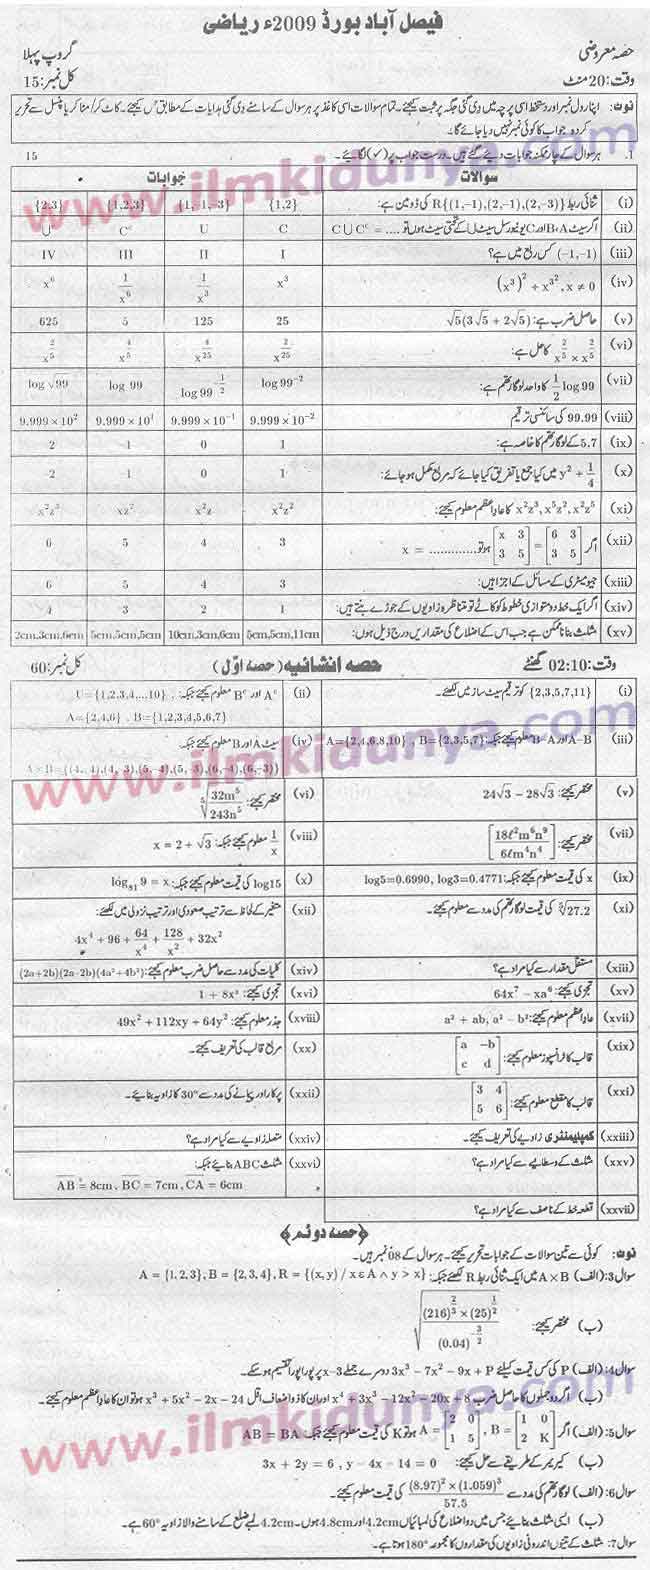 فیصل آباد بورڈ 2009ء ریاضی
حصہ معروضی گروپ پہلا
وقت: 20 منٹ کل نمبر: 15
نوٹ: اپنا رول نمبر اور دستخط اسی پرچہ میں دی گئی جگہ پر ثبت کیجئے۔ تمام سوالات اسی کاغذ پر ہر سوال کے سامنے دی گئی ہدایات کے مطابق حل کیجئے۔ کاٹ کر/مٹا کر یا پنسل سے تحریر
کردہ جواب کا کوئی نمبر نہیں دیا جائے گا۔
1. ہر سوال کے چار ممکنہ جوابات دیے گئے ہیں۔ درست جواب پر (✓) لگائیے۔ 15
سوالات جوابات
(i) ثنائی ربط R{(1,−1),(2,−1),(2,−3)} کی ڈومین ہے: {1,2} {1,-1,-3} {1,2,3} {2,3}
(ii) اگر سیٹ A، B اور C یونیورسل سیٹ U کے تحتی سیٹ ہوں تو .... = C∪Cᶜ C U Cᶜ Uᶜ
(iii) (−1,−1) کس ربع میں ہے؟ I II III IV
(iv) (x³)² ÷ x³², x ≠ 0 x³ 1/x³ 1/x⁶ x⁶
(v) حاصل ضرب ہے: √5(3√5 + 2√5) 25 125 5 625
(vi) x^(2/5) × x^(2/5) کا حل ہے: x^(2/25) x^(4/25) x^(4/5) x^(2/5)
(vii) 1/2 log 99 کا واحد لوگارتھم ہے: log 99⁻² log 99^(-1/2) log 99 log √99
(viii) 99.99 کی سائنسی ترقیم 9.999 × 10⁻² 9.999 × 10⁻¹ 9.999 × 10¹ 9.999 × 10²
(ix) 5.7 کے لوگارتھم کا خاصہ ہے: 1 0 1 2
(x) y² + 1/4 میں کیا جمع یا تفریق کیا جائے کہ مربع مکمل ہو جائے: 1 0 1 -2
(xi) x²z³, x⁵z², x²z⁵ کا عاد اعظم معلوم کیجئے: x²z² x²z xz² x²z³
(xii) اگر [x 3; 3 5] = [6 3; 3 5] ہو تو ............. = x 3 4 5 6
(xiii) جیومیٹری کے مسائل کے اجزا ہیں: 3 4 5 6
(xiv) اگر ایک خط دو متوازی خطوط کو کاٹے تو متناظرہ زاویوں کے جوڑے بنتے ہیں: 1 2 3 4
(xv) مثلث بنانا ممکن ہے جب اس کے اضلاع کی مقداریں درج ذیل ہوں: 5cm,5cm,11cm 10cm,3cm,6cm 5cm,5cm,5cm 2cm,3cm,6cm
وقت: 02:10 گھنٹے حصہ انشائیہ (حصہ اوّل) کل نمبر: 60
(i) {2,3,5,7,11} کو ترقیم سیٹ ساز میں لکھئے۔
(ii) Aᶜ اور Bᶜ معلوم کیجئے جبکہ: U={1,2,3,4,...10}
A={2,4,6}, B={1,2,3,4,5,6,7}
(iii) A−B اور B−A معلوم کیجئے جبکہ: A={2,4,6,8,10} , B={2,3,5,7}
(iv) سیٹ A اور B معلوم کیجئے جبکہ:
A×B={(4,-4),(4,-3),(5,-4),(5,-3),(6,-4),(6,-3)}
(v) مختصر کیجئے: 24√3 − 28√3
(vi) مختصر کیجئے: ⁵√(32m⁵/243n⁵)
(vii) مختصر کیجئے: [18ℓ²m⁶n⁹/6ℓm⁴n⁴]
(viii) 1/x معلوم کیجئے جبکہ: x = 2 + √3
(ix) x کی قیمت معلوم کیجئے جبکہ: log5=0.6990, log3=0.4771
(x) log15 کی قیمت معلوم کیجئے: log₈₁ 9 = x
(xi) 27.2 کی قیمت لوگارتھم کی مدد سے معلوم کیجئے۔
(xii) متغیر کے لحاظ سے ترتیب صعودی اور ترتیب نزولی میں لکھئے:
4x⁴ + 96 + 64/x⁴ + 128/x² + 32x²
(xiii) مستقل مقدار سے کیا مراد ہے؟
(xiv) کلیات کی مدد سے حاصل ضرب معلوم کیجئے: (2a+2b)(2a-2b)(4a²+4b²)
(xv) تجزی کیجئے: 64x⁷ − xa⁶
(xvi) تجزی کیجئے: 1 + 8x³
(xvii) عاد اعظم معلوم کیجئے: a² + ab, a² − b²
(xviii) جذر معلوم کیجئے: 49x² + 112xy + 64y²
(xix) قالب کا ٹرانسپوز معلوم کیجئے: [a −b; c d]
(xx) مربع قالب کی تعریف کیجئے۔
(xxi) قالب کا مقطع معلوم کیجئے: [3 4; 5 6]
(xxii) پرکار اور پیمانے کی مدد سے 30° کا زاویہ بنائیے۔
(xxiii) کمپلیمنٹری زاویے کی تعریف کیجئے۔
(xxiv) متصلہ زاویے سے کیا مراد ہے؟
(xxv) مثلث کے وسطانیے سے کیا مراد ہے؟
(xxvi) مثلث ABC بنائیے جبکہ:
AB = 8cm, BC = 7cm, CA = 6cm
(xxvii) قطعہ خط کے ناصف سے کیا مراد ہے؟
﴿حصہ دوئم﴾
نوٹ: کوئی سے تین سوالات کے جوابات تحریر کیجئے۔ ہر سوال کے 08 نمبر ہیں۔
سوال 3: (الف) A×B میں ایک ثنائی ربط R لکھئے جبکہ: A = {1,2,3}, B = {2,3,4}, R = {(x,y) / x ε A ∧ y > x}
(ب) مختصر کیجئے: √((216)^(2/3) × (25)^(1/2) / (0.04)^(-3/2))
سوال 4: (الف) P کی کس قیمت کیلئے 3x³ − 7x² − 9x + P دوسرے جملے x−3 پر پورا پورا تقسیم ہو سکے۔
(ب) اگر دو جملوں کا حاصل ضرب x⁴ + 3x³ − 12x² − 20x + 8 اور ان کا ذواضعاف اقل x³ + 5x² − 2x − 24 ہو تو ان کا عاد اعظم معلوم کیجئے۔
سوال 5: (الف) اگر A = [2 0; 1 5], B = [1 0; 2 K] ہو تو K کی قیمت معلوم کیجئے جبکہ: AB = BA
(ب) کریمر کے طریقے سے حل کیجئے: 3x + 2y = 6 , y − 4x − 14 = 0
سوال 6: (الف) لوگارتھم کی مدد سے (8.97)² × (1.059)³ / 57.5 کی قیمت معلوم کیجئے۔
(ب) ایسی مثلث بنائیے جس میں دو اضلاع کی لمبائیاں 4.2cm اور 4.8cm ہوں۔ 4.2cm لمبے ضلع کے سامنے والا زاویہ 60° ہے۔
سوال 7: مثلث کے تینوں اندرونی زاویوں کی مقداروں کا مجموعہ 180° ہوتا ہے۔
www.ilmkidunya.com
www.ilmkidunya.com
www.ilmkidunya.com